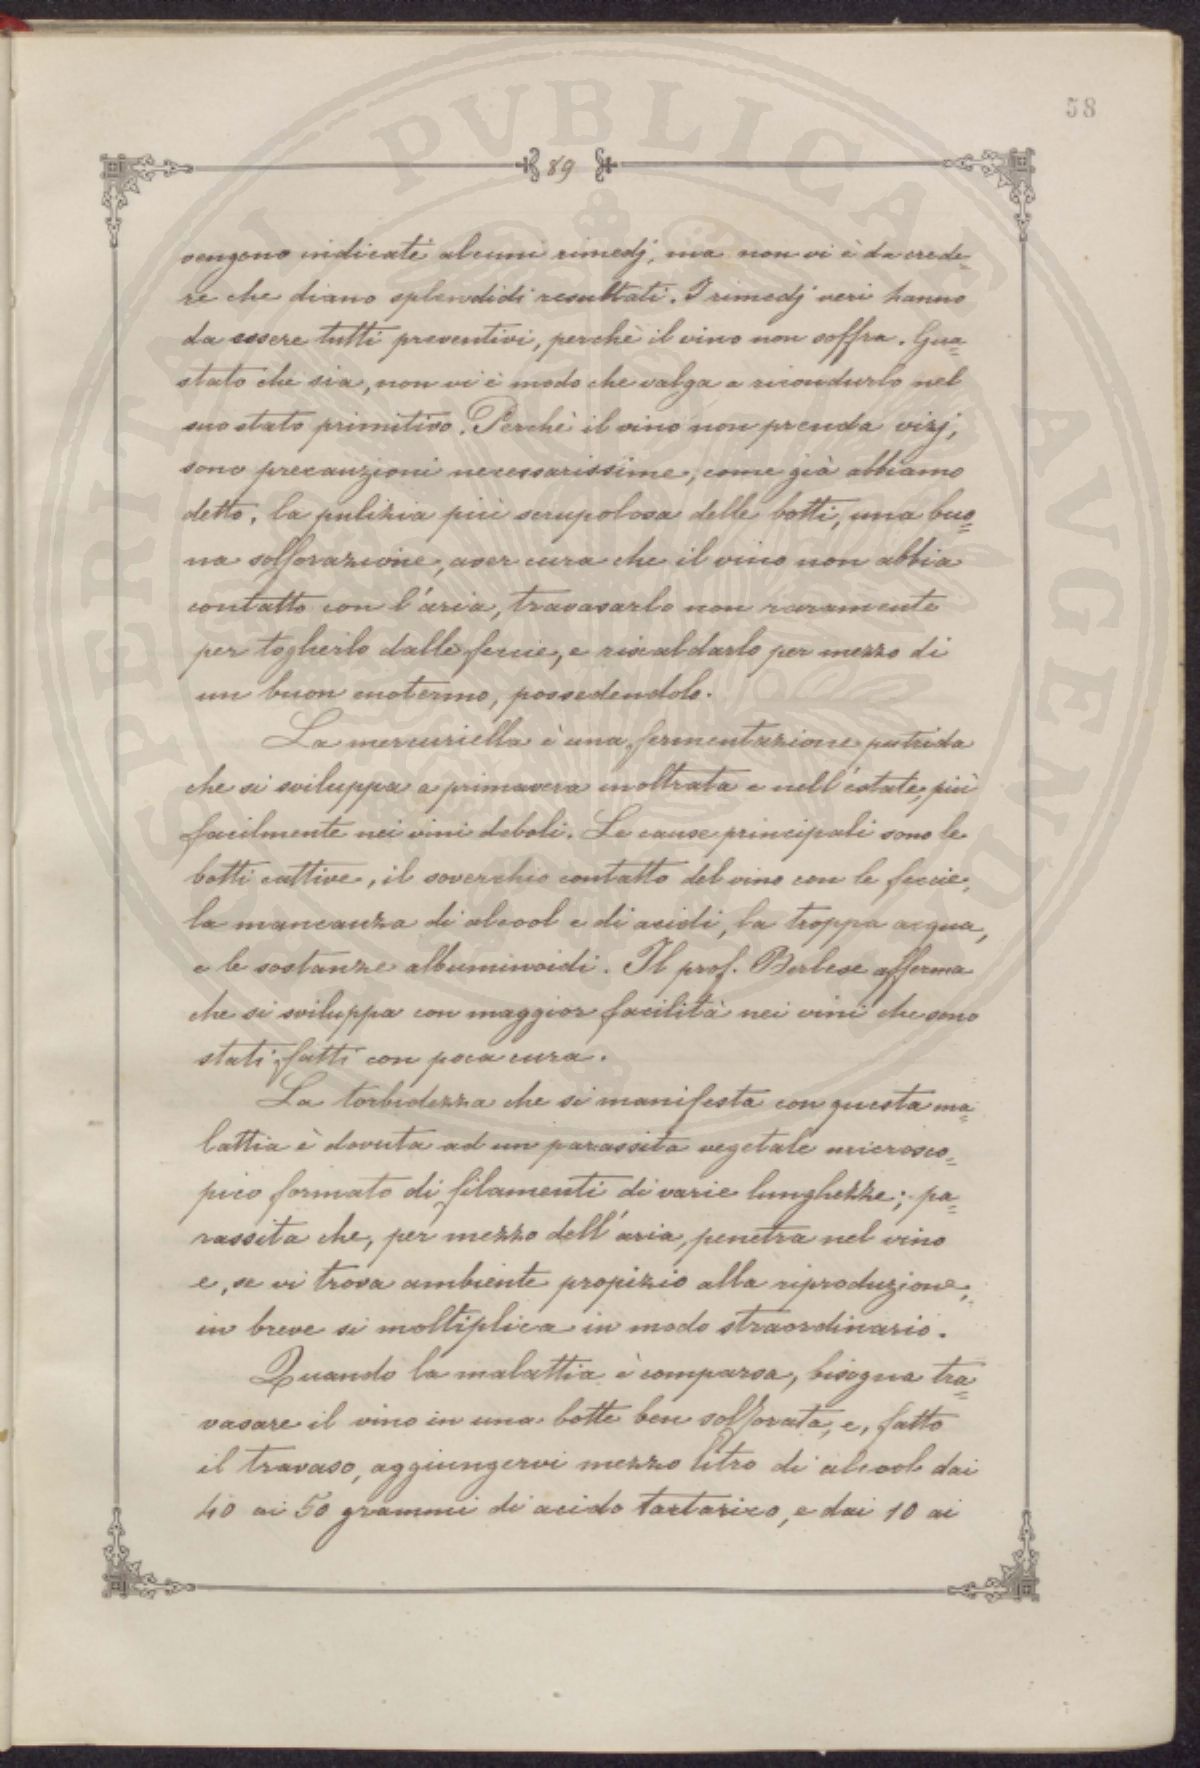 58
89
vengono indicati alcuni rimedj, ma non vi è da crede=
re che diano splendidi resultati. I rimedj veri hanno
da essere tutti preventivi, perchè il vino non soffra. Gua=
stato che sia, non vi è modo che valga a ricondurlo nel
suo stato primitivo. Perchè il vino non prenda vizj,
sono precauzioni necessarissime, come già abbiamo
detto, la pulizia più scrupolosa delle botti, una buo=
na solforazione, aver cura che il vino non abbia
contatto con l'aria, travasarlo non raramente
per toglierlo dalle feccie, e riscaldarlo per mezzo di
un buon enotermo, possedendolo.
La mercuriella è una fermentazione putrida
che si sviluppa a primavera inoltrata e nell'estate, più
facilmente nei vini deboli. Le cause principali sono le
botti cattive, il soverchio contatto del vino con le feccie,
la mancanza di alcool e di acidi, la troppa acqua,
e le sostanze albuminoidi. Il prof. Berlese afferma
che si sviluppa con maggior facilità nei vini che sono
stati fatti con poca cura.
La torbidezza che si manifesta con questa ma=
lattia è dovuta ad un parassita vegetale microsco=
pico formato di filamenti di varie lunghezze; pa=
rassita che, per mezzo dell'aria, penetra nel vino
e, se vi trova ambiente propizio alla riproduzione,
in breve si moltiplica in modo straordinario.
Quando la malattia è comparsa, bisogna tra=
vasare il vino in una botte ben solforata, e, fatto
il travaso, aggiungervi mezzo litro di alcool dai
40 ai 50 grammi di acido tartarico, e dai 10 ai